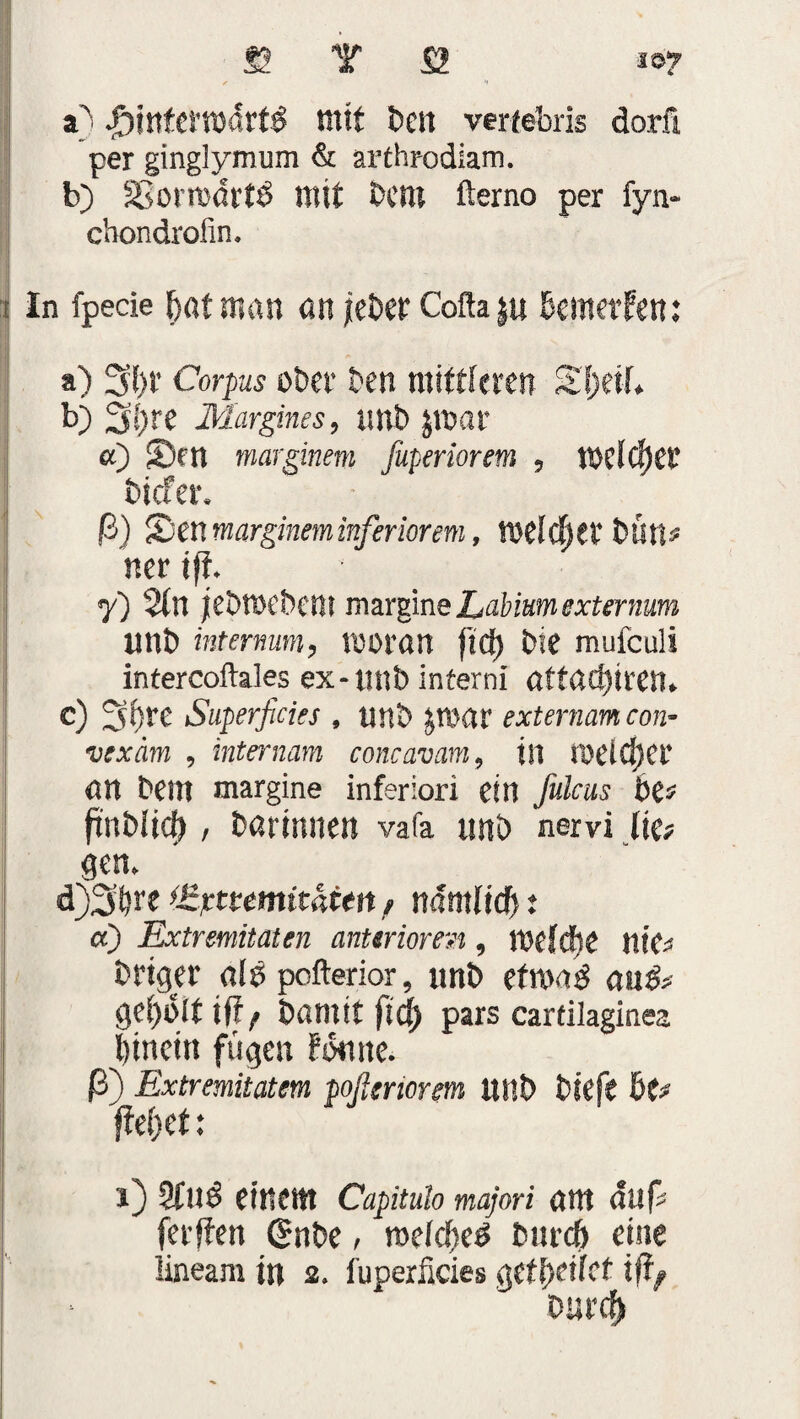 Ω Υ Ω 107
a) Hinterwärts mit den vertebris dorſi
per ginglymum & arthrodiam.
b) Vorwärts mit dem ſterno per ſyn-
chondroſin.
In ſpecie hat man an jeder Coſta zu bemerken:
a) Ihr Corpus oder den mittleren Theil.
b) Ihre Margines, und zwar
α) Den marginem ſuperiorem , welcher
dicker.
β) Den marginem inferiorem, welcher dün-
ner iſt.
γ) An jedwedem margine Labium externum
und internum, woran ſich die muſculi
intercoſtales ex- und interni attachiren.
c) Ihre Superficies , und zwar externam con-
vexam , internam concavam, in welcher
an dem margine inferiori ein ſulcus be-
findlich , darinnen vaſa und nervi lie-
gen.
d) Ihre Extremitäten, nämlich:
α) Extremitaten anteriorem, welche nie-
driger als poſterior, und etwas aus-
gehölt iſt, damit ſich pars cartilaginea
hinein fügen könne.
β) Extremitatem poſteriorem und dieſe be-
ſtehet:
1) Aus einem Capitulo majori am äuſ-
ſerſten Ende, welches durch eine
lineam in 2. ſuperficies getheilet iſt,
durch